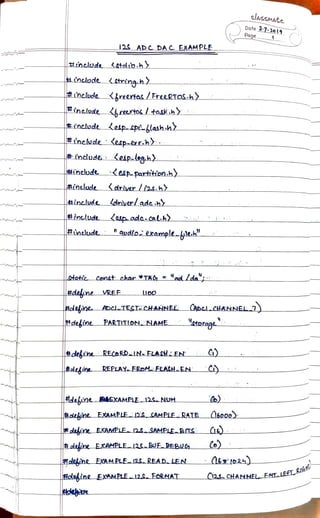 classmate
Date 2-7-2019
Page 1
I2S ADC DAC EXAMPLE
#include <stdio.h>
#include <string.h>
#include <freertos/FreeRTOS.h>
#include <freertos/task.h>
#include <esp_spi_flash.h>
#include <esp_err.h>
#include <esp_log.h>
#include <esp_partition.h>
#include <driver/i2s.h>
#include <driver/adc.h>
#include <esp_adc_cal.h>
#include "audio_example_file.h"
static const char *TAG = "ad/da";
#define VREF 1100
#define ADC1_TEST_CHANNEL (ADC1_CHANNEL_7)
#define PARTITION_NAME "storage"
#define RECORD_IN_FLASH_EN (1)
#define REPLAY_FROM_FLASH_EN (1)
#define EXAMPLE_I2S_NUM (0)
#define EXAMPLE_I2S_SAMPLE_RATE (16000)
#define EXAMPLE_I2S_SAMPLE_BITS (16)
#define EXAMPLE_I2S_BUF_DEBUG (0)
#define EXAMPLE_I2S_READ_LEN (16*1024)
#define EXAMPLE_I2S_FORMAT (I2S_CHANNEL_FMT_LEFT_RIGHT)